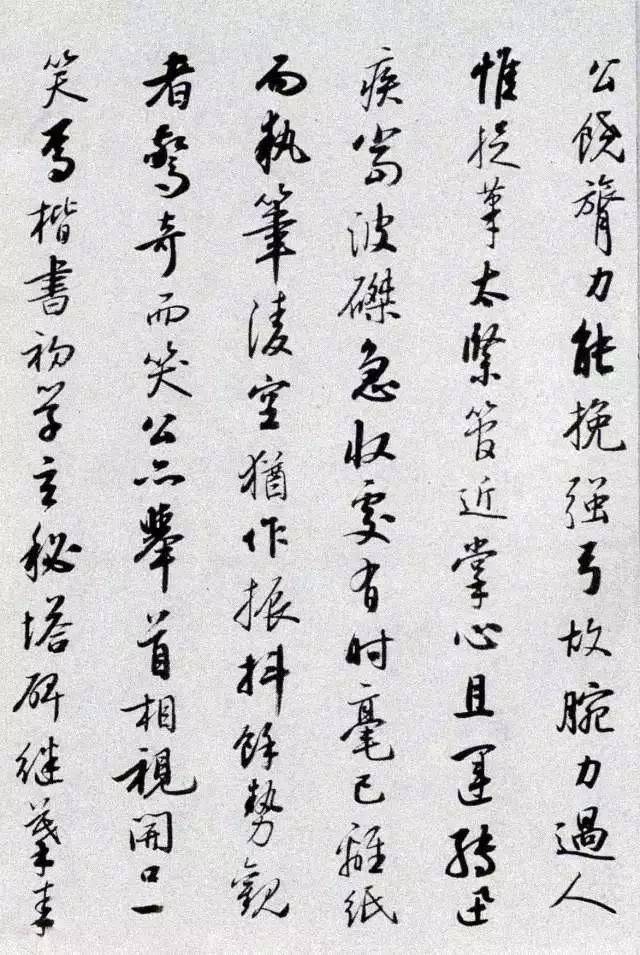 公饒膂力能挽強弓故腕力過人
惟捉筆太緊管近掌心且運轉迅
疾當波磔急收處有時毫已離紙
而執筆凌空猶作振抖餘勢觀
者驚奇而笑公亦舉首相視開口一
笑焉楷書初學玄秘塔碑繼摹